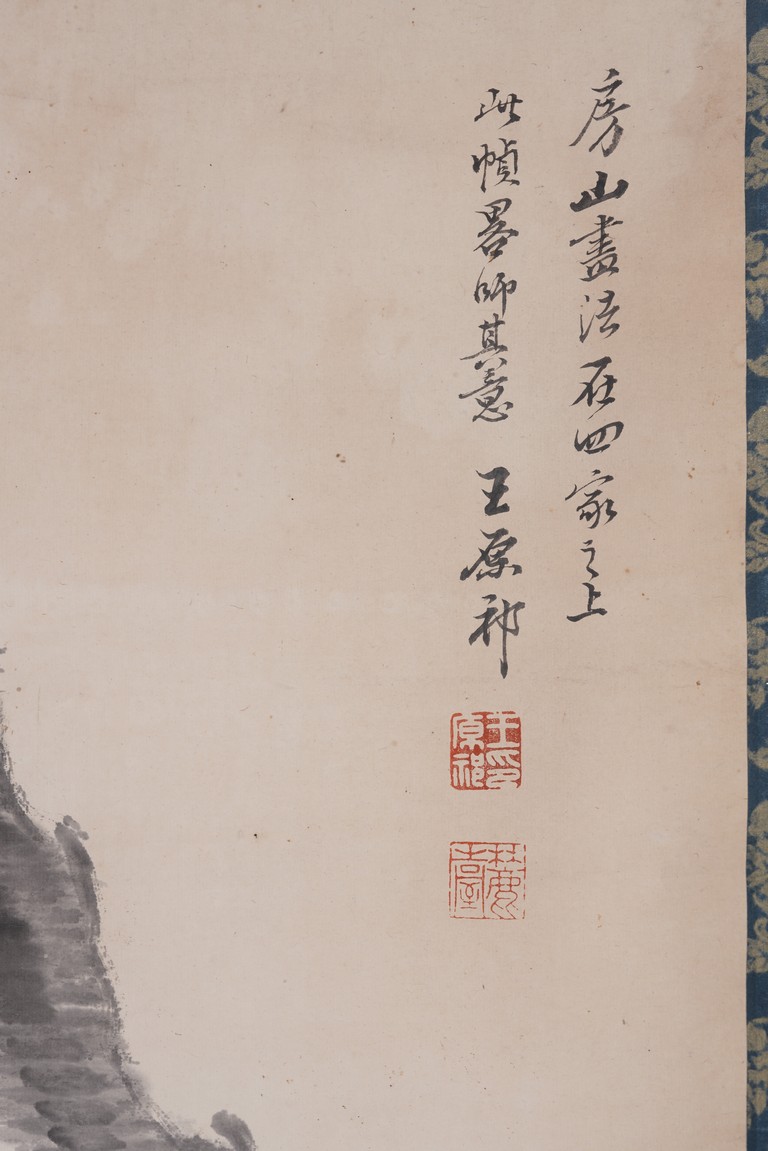 房山畫法在四家之上
此幀畧師其意 王原祁
王原祁印
麓臺